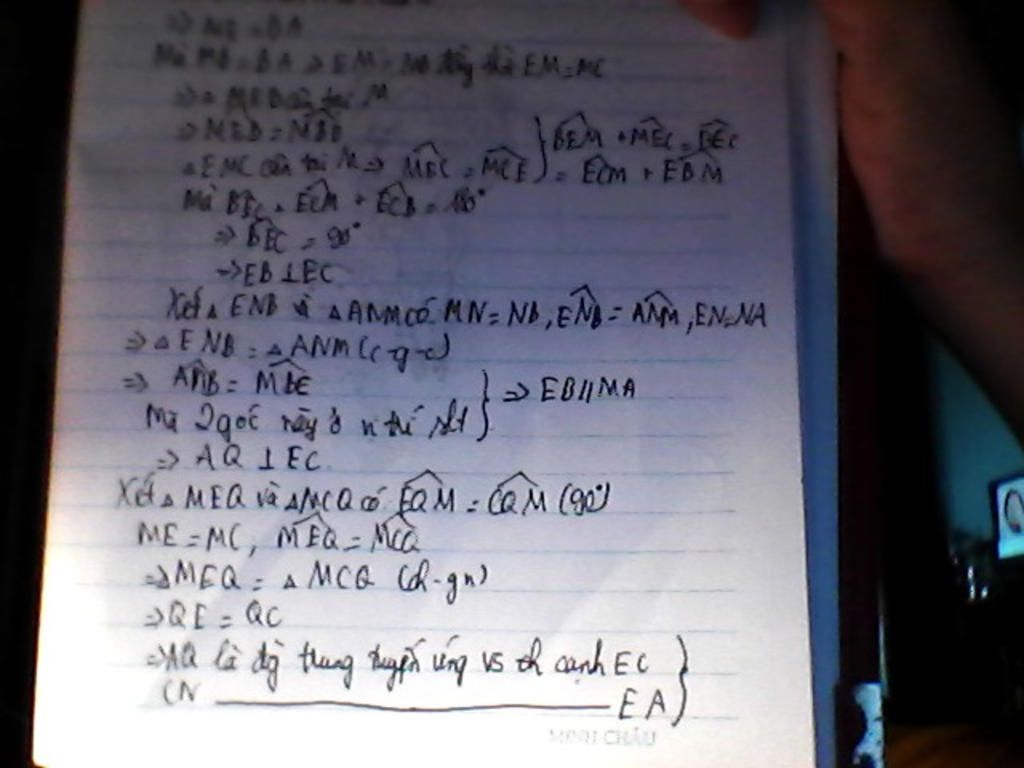 ⇒ ME = BA
Mà MB = BA ⇒ EM = MB đồng thời EM = MC
⇒ △ MEB cân tại M
⇒ MEB = MBE
△ EMC cân tại M ⇒ MEC = MCE } BEM + MEC = BEC = ECM + EBM
Mà BEC + ECM + ECB = 180°
⇒ BEC = 90°
⇒ EB ⊥ EC
Xét △ ENB và △ ANM có MN = NB, ENB = ANM, EN = NA
⇒ △ ENB = △ ANM (c-g-c)
⇒ AMB = MBE
Mà 2 góc này ở vị thế slt } ⇒ EB // MA
⇒ AQ ⊥ EC
Xét △ MEQ và △ MCQ có EQM = CQM (90°)
ME = MC, MEQ = MCQ
⇒ △ MEQ = △ MCQ (ch-gn)
⇒ QE = QC
⇒ AQ là đg trung tuyến ứng vs ch cạnh EC
CN ——— EA }
MINH CHÂU